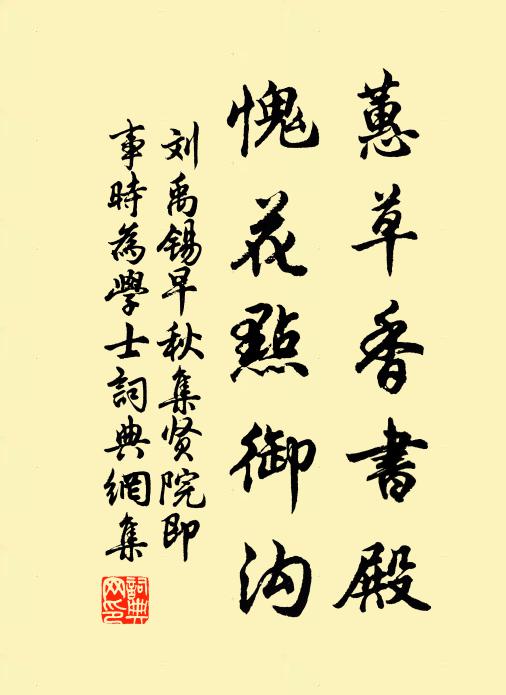 蕙草香書殿
愧花點御沟
刘禹锡早秋集贤院即
事時為學士詞典網集
詞典網印